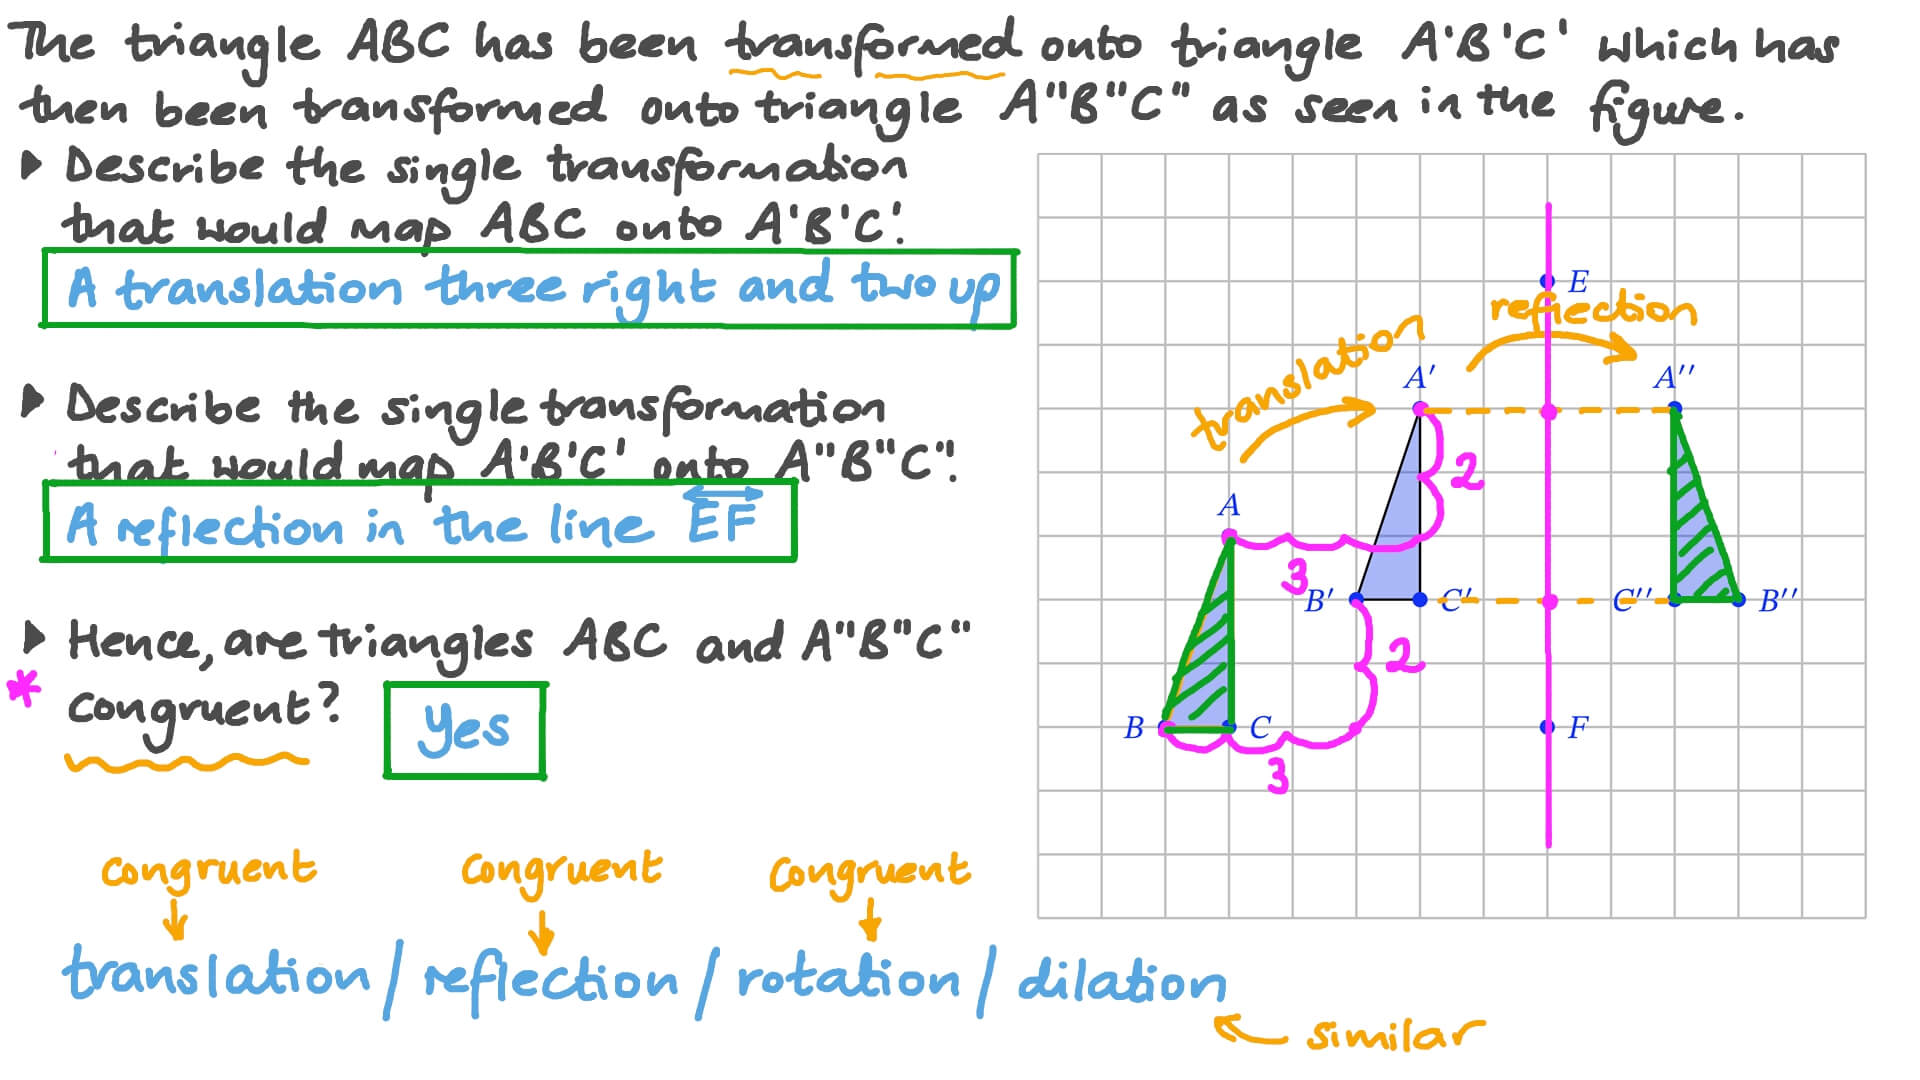 The triangle ABC has been transformed onto triangle A'B'C' which has
then been transformed onto triangle A"B"C" as seen in the figure.
▶ Describe the single transformation
that would map ABC onto A'B'C'.
A translation three right and two up
▶ Describe the single transformation
that would map A'B'C' onto A"B"C".
A reflection in the line EF
▶ Hence, are triangles ABC and A"B"C"
* congruent?
Yes
E
reflection
translation
A'
A''
2
A
3
B'
C'
C''
B''
2
B
C
F
3
congruent congruent congruent
translation / reflection / rotation / dilation
similar